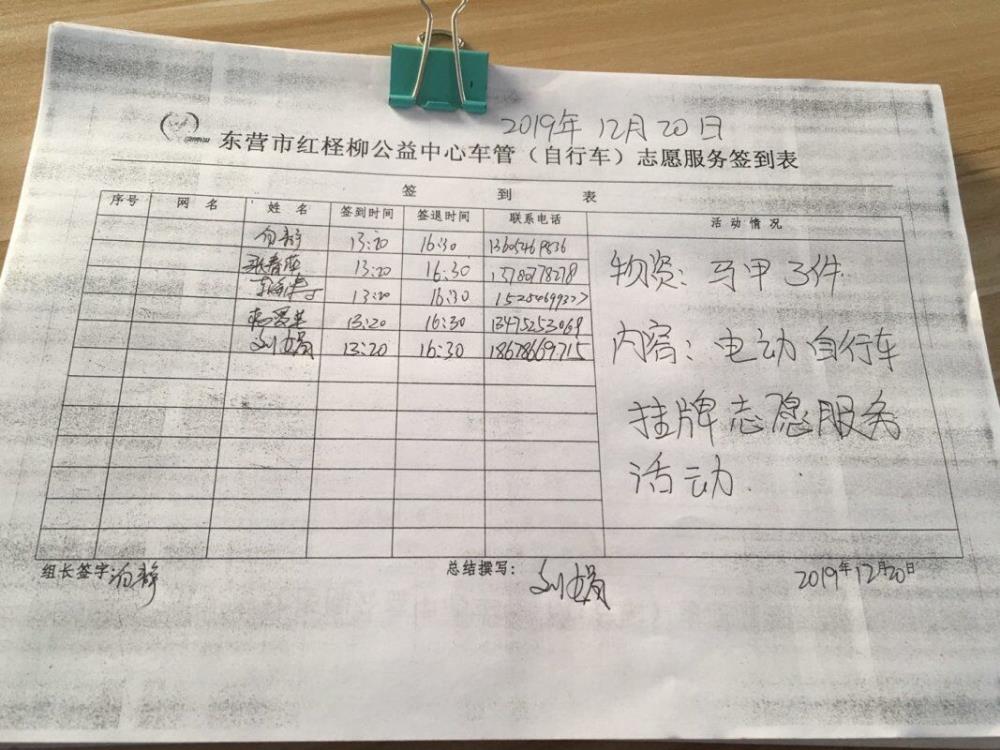 2019年12月20日
东营市红柽柳公益中心车管（自行车）志愿服务签到表
签 到 表
序号 网 名 姓 名 签到时间 签退时间 联系电话 活 动 情 况
13:20 16:30
13:20 16:30
13:20 16:30
13:20 16:30 13475253069
13:20 16:30 18678669715
物资：马甲3件
内容：电动自行车
挂牌志愿服务
活动.
组长签字: 总结撰写： 2019年12月20日